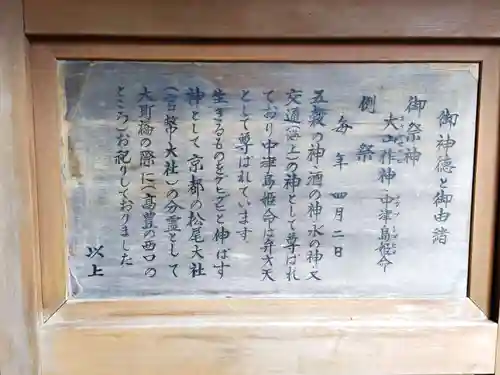 御神徳と御由緒
御祭神
大山作神・中津島姫命
例祭
毎年四月二日
五穀の神・酒の神水の神又
交通(海上)の神として尊ばれ
ており中津島姫命は弁才天
として尊ばれています
生きるものをグヒグヒと伸ばす
神として京都の松尾大社
(官幣大社)の分霊として
大斯梅の際に(高豊の西口の
ところ)お祀りしておりました
以上